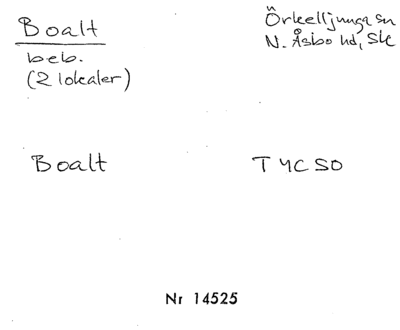 Boalt
beb.
(2 lokaler)
Örkelljunga sn
N. Åsbo hd, Sk
Boalt
T4C50
Nr 14525